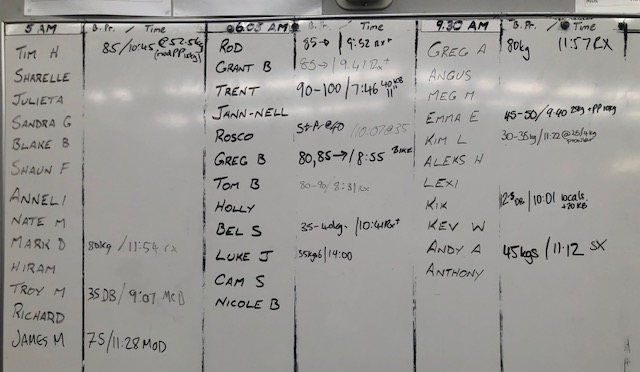 5 AM B. Pr. / Time
TIM H 85/10:45 @52.5kg
SHARELLE
JULIETA
SANDRA G
BLAKE B
SHAUN F
ANNELI
NATE M
MARK D 80kg / 11:54 rx
HIRAM
TROY M 35DB / 9:07 MOD
RICHARD
JAMES M 75/11:28 MOD
6.03 AM B. Pr. / Time
ROD 85→ 9:52 Rx+
GRANT B 85→ / 9:41 Rx+
TRENT 90-100 / 7:46 40KB
JANN-NELL
ROSCO @40 / 10:07@35
GREG B 80,85→ / 8:55 BIKE
TOM B 80-90 / 8:31 rx
HOLLY
BEL S 35-40kg / 10:41Rx+
LUKE J 55kg / 14:00
CAM S
NICOLE B
9.30 AM B. Pr. / Time
GREG A 80kg 11:57 RX
ANGUS
MEG M
EMMA E 45-50 / 9:40 25kg +PP 10kg
KIM L 30-35kg / 11:22 @25/4kg
ALEKS H
LEXI
KIK 12.5 DB / 10:01 locals
+20 KB
KEV W
ANDY A 45kgs / 11:12 SX
ANTHONY